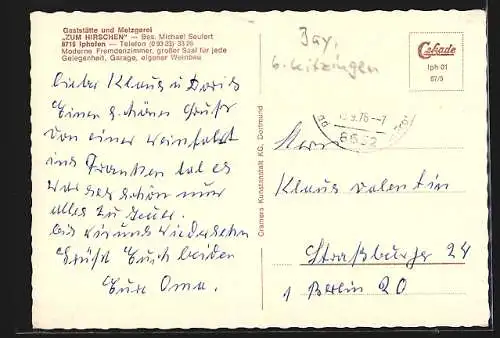 Gaststätte und Metzgerei
„ZUM HIRSCHEN" — Bes. Michael Seufert
8715 Iphofen — Telefon (0 93 23) 33 26
Moderne Fremdenzimmer, großer Saal für jede
Gelegenheit, Garage, eigener Weinbau
Lieber Klaus u Doris
Einen schönen Gruß
von einer Weinfahrt
ins Franken tal es
war sehr schön nur
alles zu teuer.
bis wir uns wiedersehn
Grüßt Euch beiden
Eure Oma.
Cramers Kunstanstalt KG, Dortmund
Bay,
b. Kitzingen
Cekade
Iph 01
67/3
.9.76-7
Herrn
Klaus Valentin
Straßburger 24
1 Berlin 20